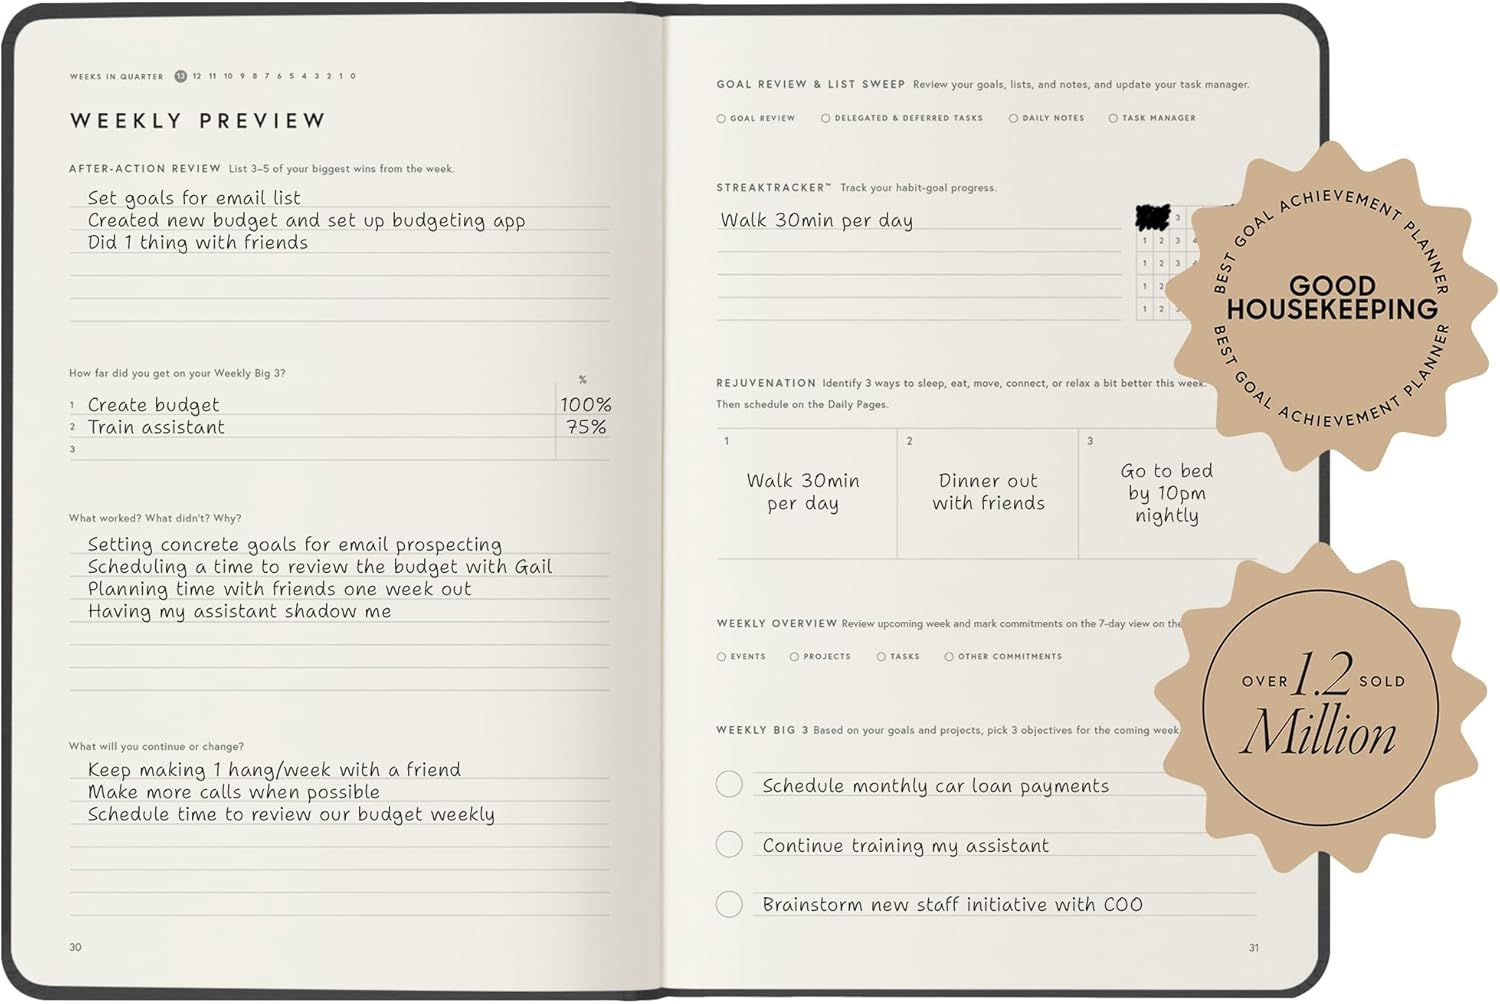 WEEKS IN QUARTER 13 12 11 10 9 8 7 6 5 4 3 2 1 0
WEEKLY PREVIEW
AFTER-ACTION REVIEW List 3–5 of your biggest wins from the week.
Set goals for email list
Created new budget and set up budgeting app
Did 1 thing with friends
How far did you get on your Weekly Big 3?
%
1 Create budget 100%
2 Train assistant 75%
3
What worked? What didn't? Why?
Setting concrete goals for email prospecting
Scheduling a time to review the budget with Gail
Planning time with friends one week out
Having my assistant shadow me
What will you continue or change?
Keep making 1 hang/week with a friend
Make more calls when possible
Schedule time to review our budget weekly
30
GOAL REVIEW & LIST SWEEP Review your goals, lists, and notes, and update your task manager.
GOAL REVIEW DELEGATED & DEFERRED TASKS DAILY NOTES TASK MANAGER
STREAKTRACKER™ Track your habit-goal progress.
Walk 30min per day
3
1 2 3 4
1 2 3 4
1 2
1 2 3
REJUVENATION Identify 3 ways to sleep, eat, move, connect, or relax a bit better this week.
Then schedule on the Daily Pages.
1 2 3
Walk 30min
per day
Dinner out
with friends
Go to bed
by 10pm
nightly
WEEKLY OVERVIEW Review upcoming week and mark commitments on the 7-day view on the
EVENTS PROJECTS TASKS OTHER COMMITMENTS
WEEKLY BIG 3 Based on your goals and projects, pick 3 objectives for the coming week
Schedule monthly car loan payments
Continue training my assistant
Brainstorm new staff initiative with COO
31
BEST GOAL ACHIEVEMENT PLANNER
GOOD
HOUSEKEEPING
BEST GOAL ACHIEVEMENT PLANNER
OVER 1.2 SOLD
Million